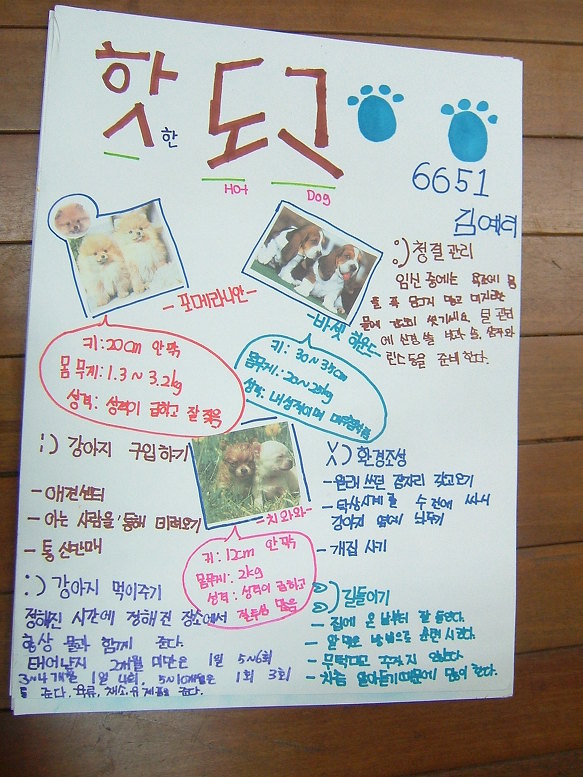 핫 한 도그
Hot Dog
6651
김예더
:) 청결 관리
임신 중에는 욕조에 몸
을 푹 담그지 말고 미지근한
물에 씻기세요. 털 관리
에 쓸 솔,
린스 등을 준비한다.
- 포메라니안 -
키: 20cm 안팎
몸무게: 1.3~3.2kg
성격: 성격이 급하고 잘 짖음
- 바셋 하운드 -
키: 30~35cm
몸무게: 20~25kg
성격: 내성적이며
:) 강아지 구입하기
- 애견센터
- 아는 사람을 통해 데려오기
- 통신판매
- 치와와 -
키: 12cm 안팎
몸무게: 2kg
성격: 성격이 급하고
질투심 많음
X) 환경조성
- 원래 쓰던 잠자리 갖고오기
- 탁상시계를 수건에 싸서
강아지 옆에 놔주기
- 개집 사기
:) 강아지 먹이주기
정해진 시간에 정해진 장소에서
항상 물과 함께 준다.
태어난지 2개월 미만은 1일 5~6회
3~4개월 1일 4회, 5~10개월은 1일 3회
를 준다. 육류, 채소, 유제품을 준다.
:) 길들이기
- 집에 온 날부터 잘 놀린다.
- 알맞은 방법으로 훈련시킨다.
- 무턱대고 꾸짖지 않는다.
- 차츰 알아듣기때문에 많이 한다.